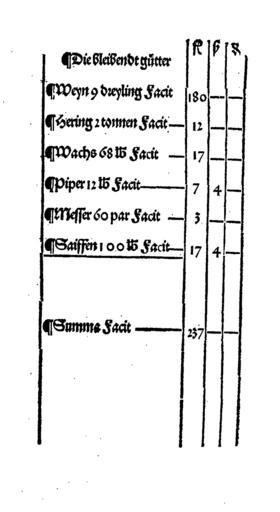 fl ß ₰
¶Die bleibendt gůtter
¶Weyn 9 dreyling Facit 180 — —
¶Hering 2 tonnen Facit — 12 — —
¶Wachs 68 lb Facit — 17 — —
¶Piper 12 lb Facit — 7 4 —
¶Messer 60 par Facit — 3 — —
¶Saiffen 100 lb Facit — 17 4 —
¶Summa Facit — 237 — —